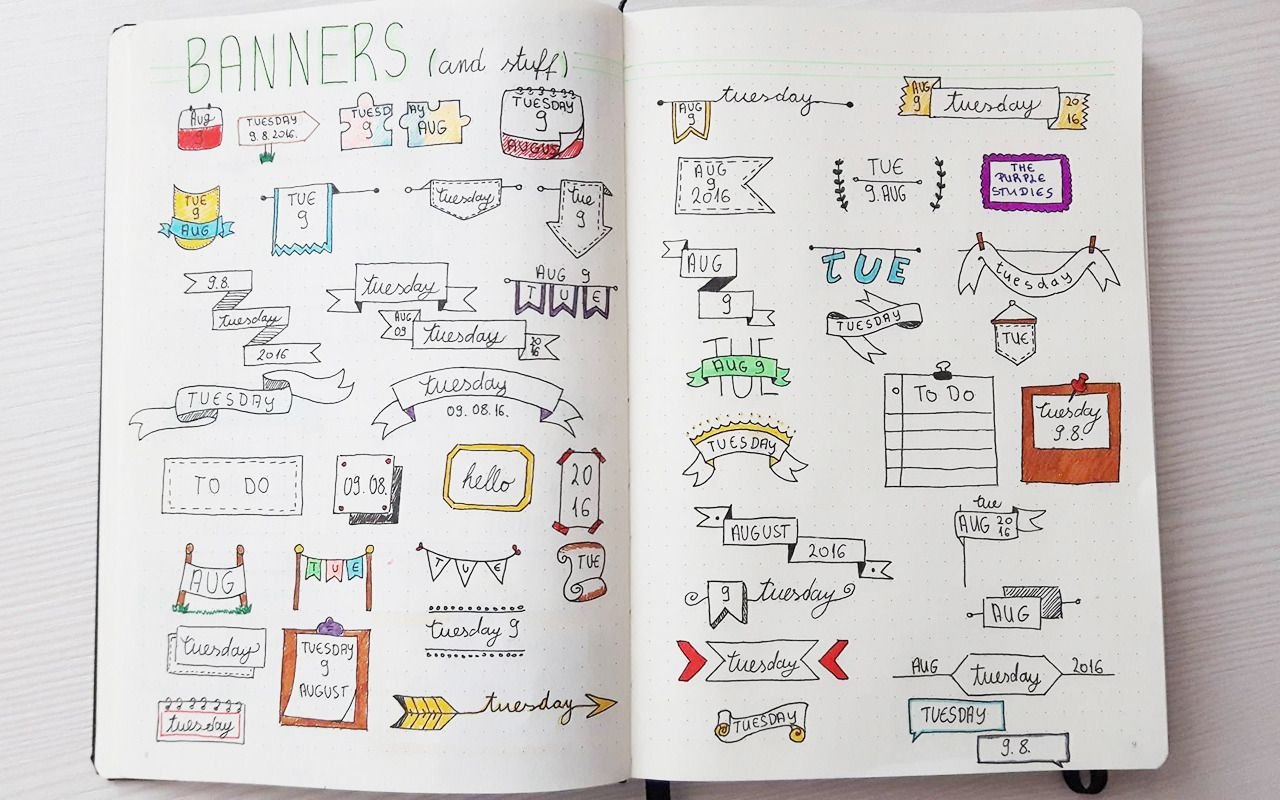 BANNERS (and stuff)
Aug
9
TUESDAY
9.8.2016.
TUESD
9
AY
AUG
TUESDAY
9
AUGUS
TUE
9
AUG
TUE
9
tuesday
tue
9
9.8.
tuesday
2016
tuesday
AUG 9
TUE
AUG
09
tuesday
20
16
TUESDAY
tuesday
09.08.16.
TO DO
09.08.
hello
20
16
AUG
TUE
TUE
TUE
tuesday
TUESDAY
9
AUGUST
tuesday 9
tuesday
tuesday
AUG
9
tuesday
AUG
9
tuesday
20
16
AUG
9
2016
TUE
9.AUG
THE
PURPLE
STUDIES
AUG
9
TUE
tuesday
TUESDAY
TUE
TUE
AUG 9
TO DO
tuesday
9.8.
TUESDAY
AUGUST
2016
tue
AUG 20
16
9
tuesday
AUG
tuesday
AUG
tuesday
2016
TUESDAY
TUESDAY
9.8.